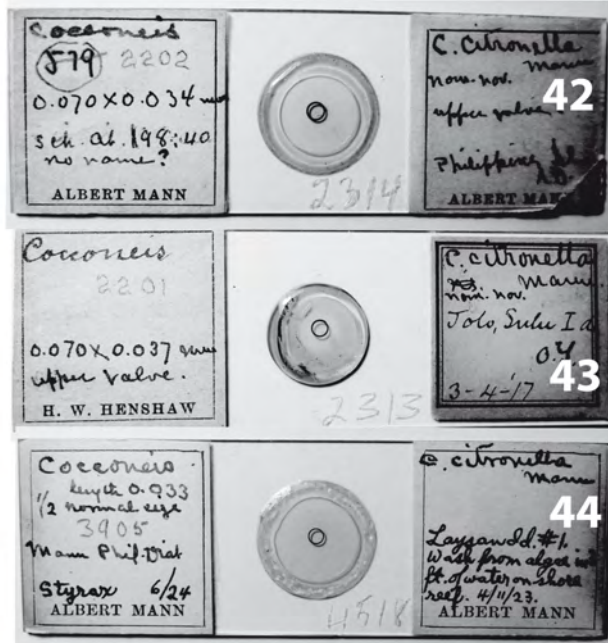 Cocconeis
579 2202
0.070 x 0.034 mm
Sch. At. 198:40
no name?
ALBERT MANN
2314
C. citronella
Mann
nom. nov.
upper valve.
Philippine
ALBERT MANN
42
Cocconeis
2201
0.070 x 0.037 mm
upper valve.
H. W. HENSHAW
2313
C. citronella
Mann
nom. nov.
Jolo, Sulu Id
3-4-'17
43
Cocconeis
length 0.033
1/2 normal size
3905
Mann Phil. Diat
Styrax 6/24
ALBERT MANN
4518
C. citronella
Mann
Laysan Id. #1.
Wash from algae in 2
ft. of water on shore
reef. 4/11/23.
ALBERT MANN
44